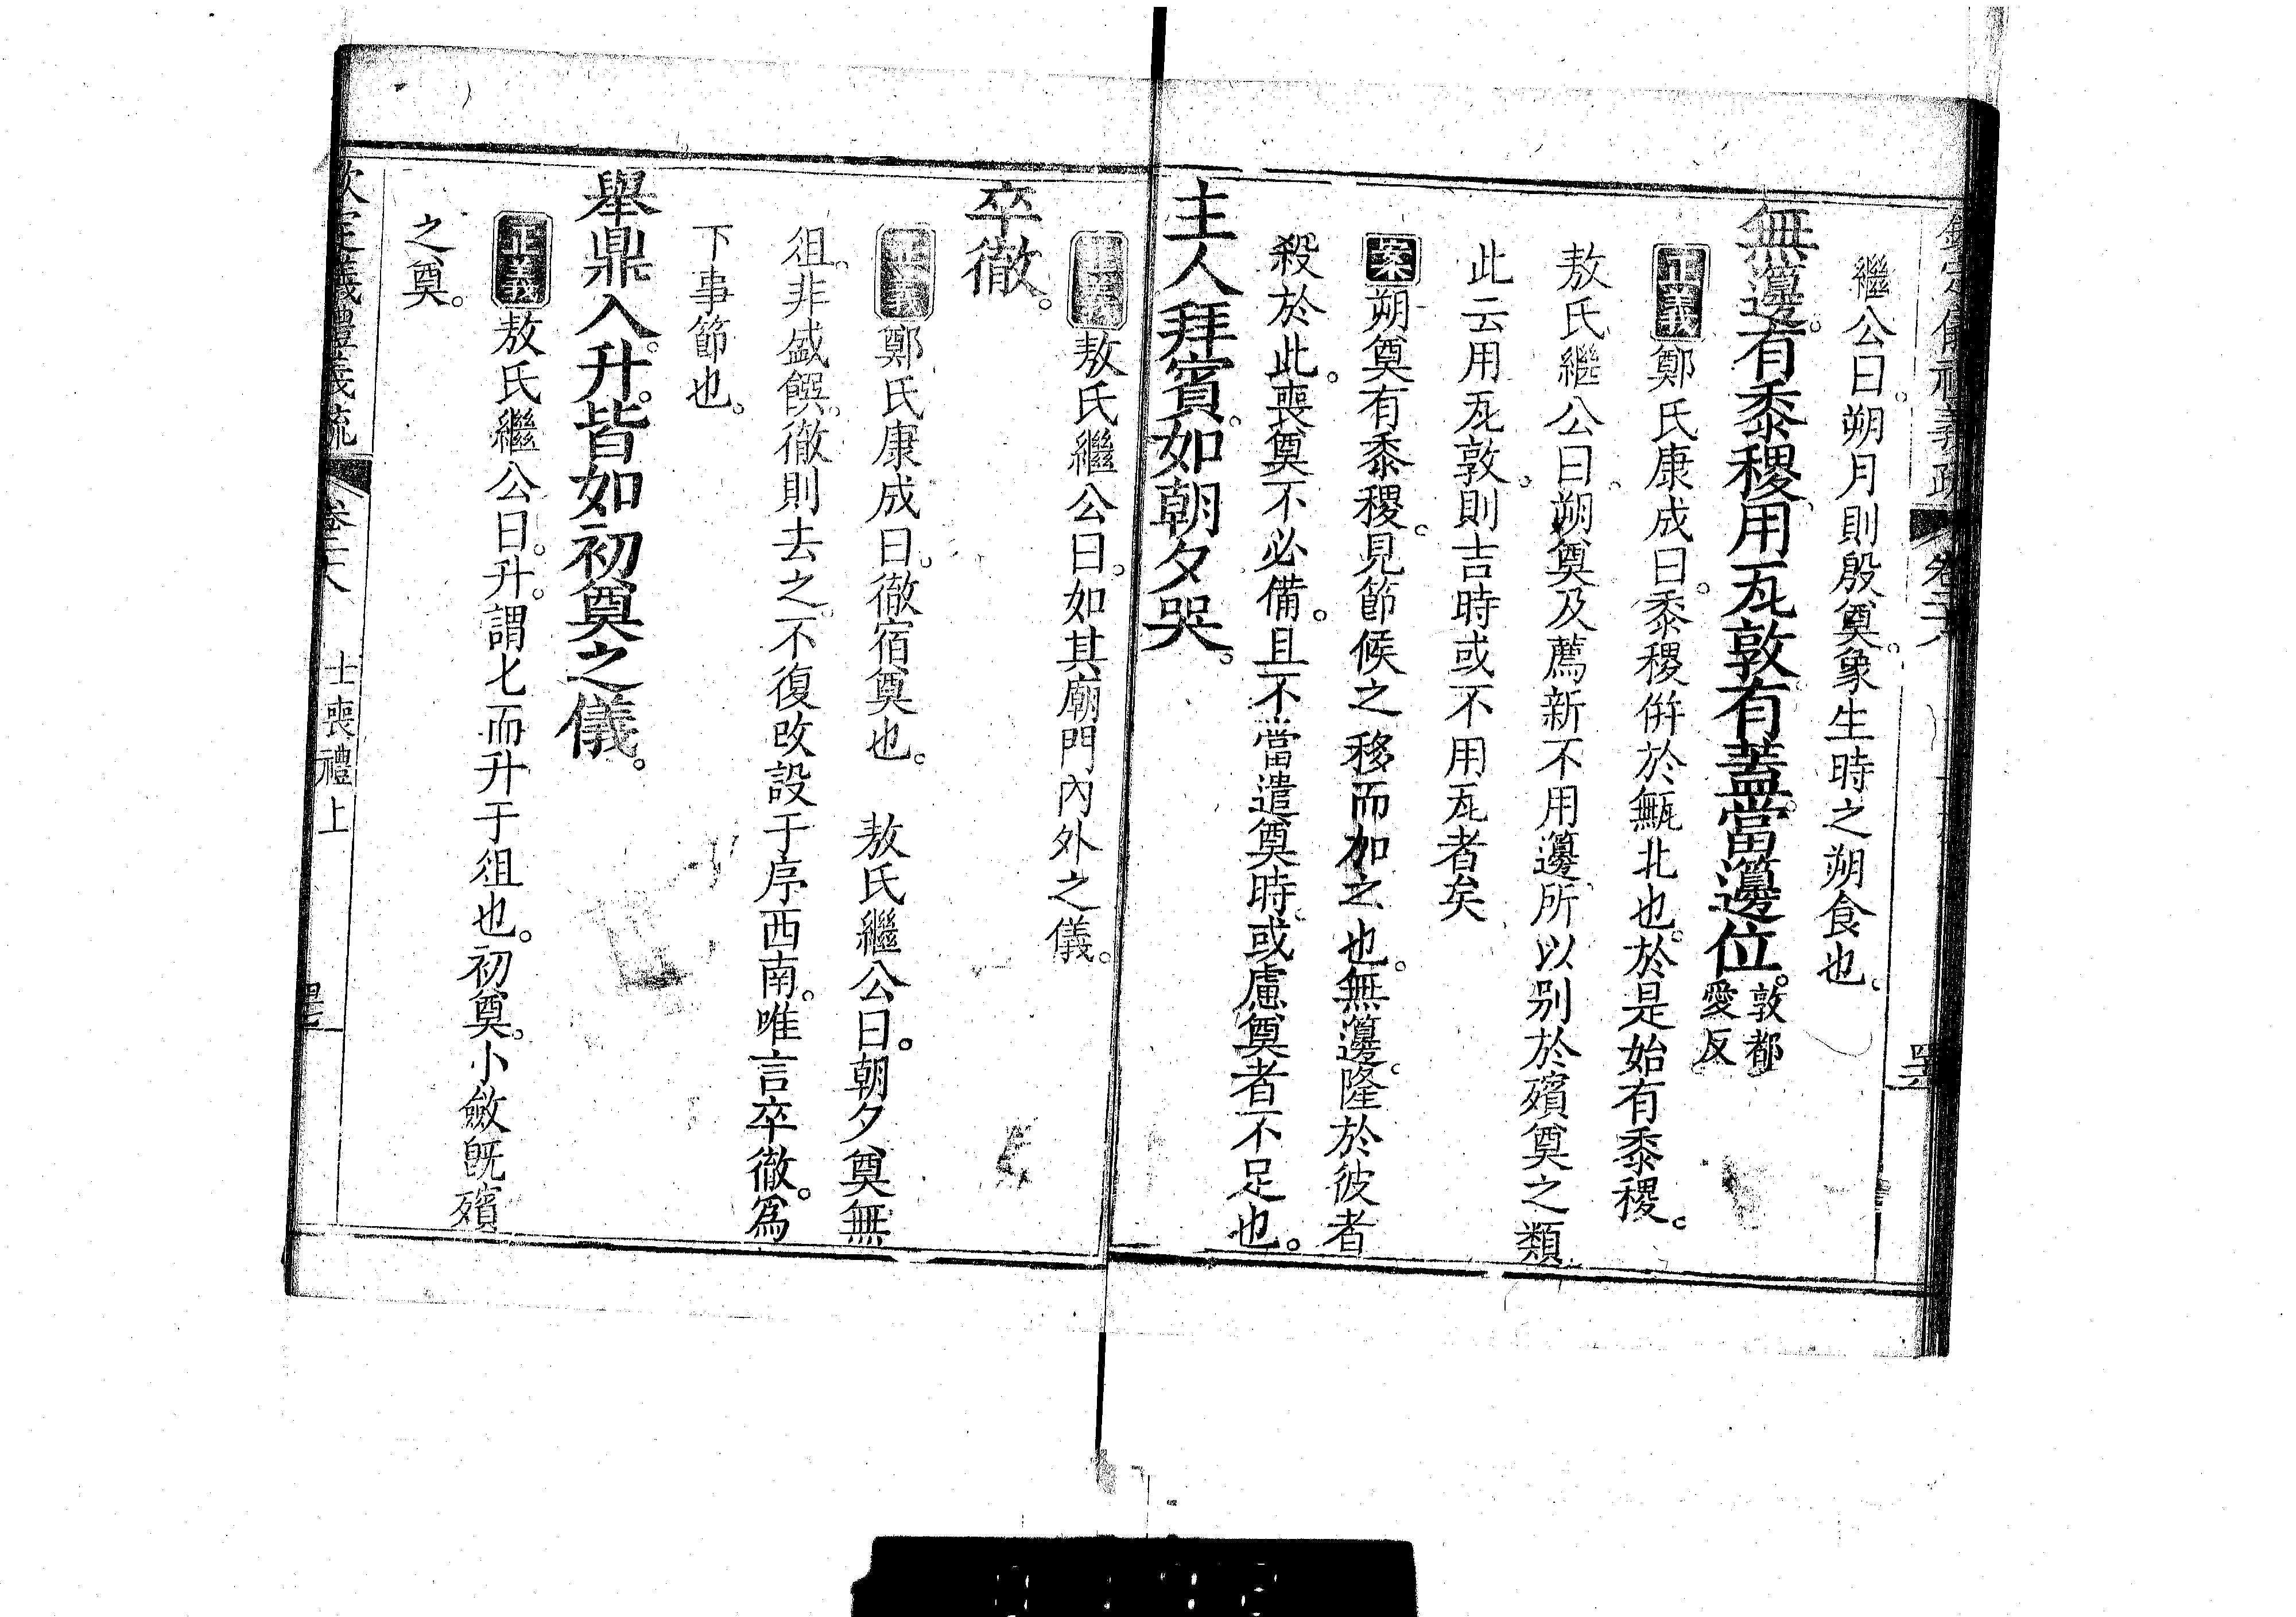 繼公曰。朔月則殷奠。象生時之朔食也。
無籩。有黍稷。用瓦敦。有蓋。當籩位。敦都愛反
正義鄭氏康成曰。黍稷倂於甒北也。於是始有黍稷。
敖氏繼公曰。朔奠及薦新不用籩。所以別於殯奠之類
此云用瓦敦。則吉時或不用瓦者矣
案朔奠有黍稷。見節候之移而加之也。無籩。隆於彼者
殺於此。喪奠不必備。且不當遣奠時。或慮奠者不足也。
主人拜賓。如朝夕哭。
正義敖氏繼公曰。如其廟門內外之儀。
卒徹。
正義鄭氏康成曰。徹宿奠也。 敖氏繼公曰。朝夕奠無
俎。非盛饌。徹則去之。不復改設于序西南。唯言卒徹。爲
下事節也。
舉鼎入。升。皆如初奠之儀。
正義敖氏繼公曰。升。謂匕而升于俎也。初奠。小斂旣殯
之奠。
欽定儀禮義疏 卷二十八 士喪禮上